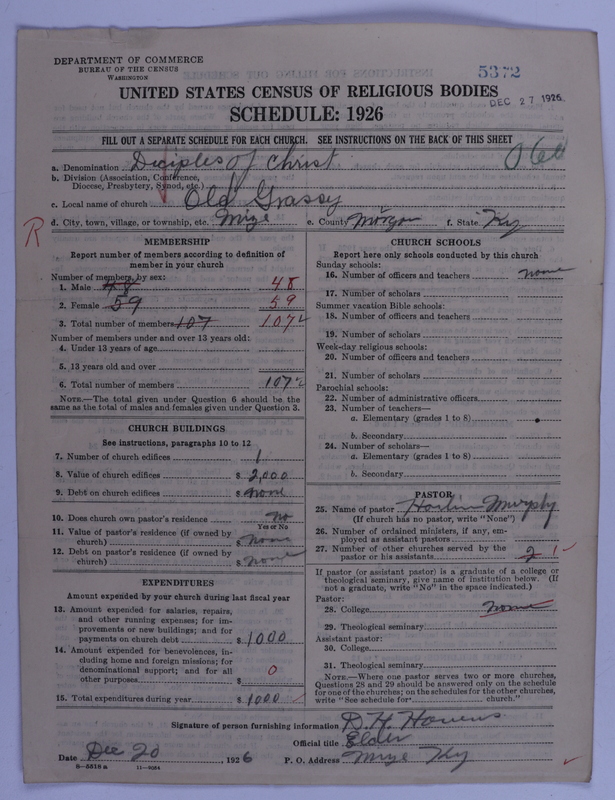 DEPARTMENT OF COMMERCE
BUREAU OF THE CENSUS
WASHINGTON
5372
UNITED STATES CENSUS OF RELIGIOUS BODIES
DEC 27 1926
SCHEDULE: 1926
FILL OUT A SEPARATE SCHEDULE FOR EACH CHURCH. SEE INSTRUCTIONS ON THE BACK OF THIS SHEET
a. Denomination Diciples of Christ
b. Division (Association, Conference,
Diocese, Presbytery, Synod, etc.)
c. Local name of church Old Grassy
d. City, town, village, or township, etc. Mize e. County Morgan f. State Ky
R
MEMBERSHIP
Report number of members according to definition of
member in your church
Number of members, by sex:
1. Male 48 48
2. Female 59 59
3. Total number of members 107 107
Number of members under and over 13 years old:
4. Under 13 years of age
5. 13 years old and over
6. Total number of members 107
NOTE.—The total given under Question 6 should be the
same as the total of males and females given under Question 3.
CHURCH BUILDINGS
See instructions, paragraphs 10 to 12
7. Number of church edifices 1
8. Value of church edifices $ 2,000
9. Debt on church edifices $ none
10. Does church own pastor's residence no
Yes or No
11. Value of pastor's residence (if owned by
church) $ none
12. Debt on pastor's residence (if owned by
church) $ none
EXPENDITURES
Amount expended by your church during last fiscal year
13. Amount expended for salaries, repairs,
and other running expenses; for im-
provements or new buildings; and for
payments on church debt $ 1000
14. Amount expended for benevolences, in-
cluding home and foreign missions; for
denominational support; and for all
other purposes $ 0
15. Total expenditures during year $ 1000
CHURCH SCHOOLS
Report here only schools conducted by this church
Sunday schools:
16. Number of officers and teachers none
17. Number of scholars
Summer vacation Bible schools:
18. Number of officers and teachers
19. Number of scholars
Week-day religious schools:
20. Number of officers and teachers
21. Number of scholars
Parochial schools:
22. Number of administrative officers
23. Number of teachers—
a. Elementary (grades 1 to 8)
b. Secondary
24. Number of scholars—
a. Elementary (grades 1 to 8)
b. Secondary
PASTOR
25. Name of pastor Harlin Murphy
(If church has no pastor, write "None")
26. Number of ordained ministers, if any, em-
ployed as assistant pastors
27. Number of other churches served by the
pastor or his assistants 2
If pastor (or assistant pastor) is a graduate of a college or
theological seminary, give name of institution below. (If
not a graduate, write "No" in the space indicated.)
Pastor:
28. College none
29. Theological seminary
Assistant pastor:
30. College
31. Theological seminary
NOTE.—Where one pastor serves two or more churches,
Questions 28 and 29 should be answered only on the schedule
for one of the churches; on the schedules for the other churches,
write "See schedule for church."
Signature of person furnishing information D. H. Havens
Official title Elder
Date Dec 20 1926 P. O. Address Mize Ky
8—5516 a 11—9054